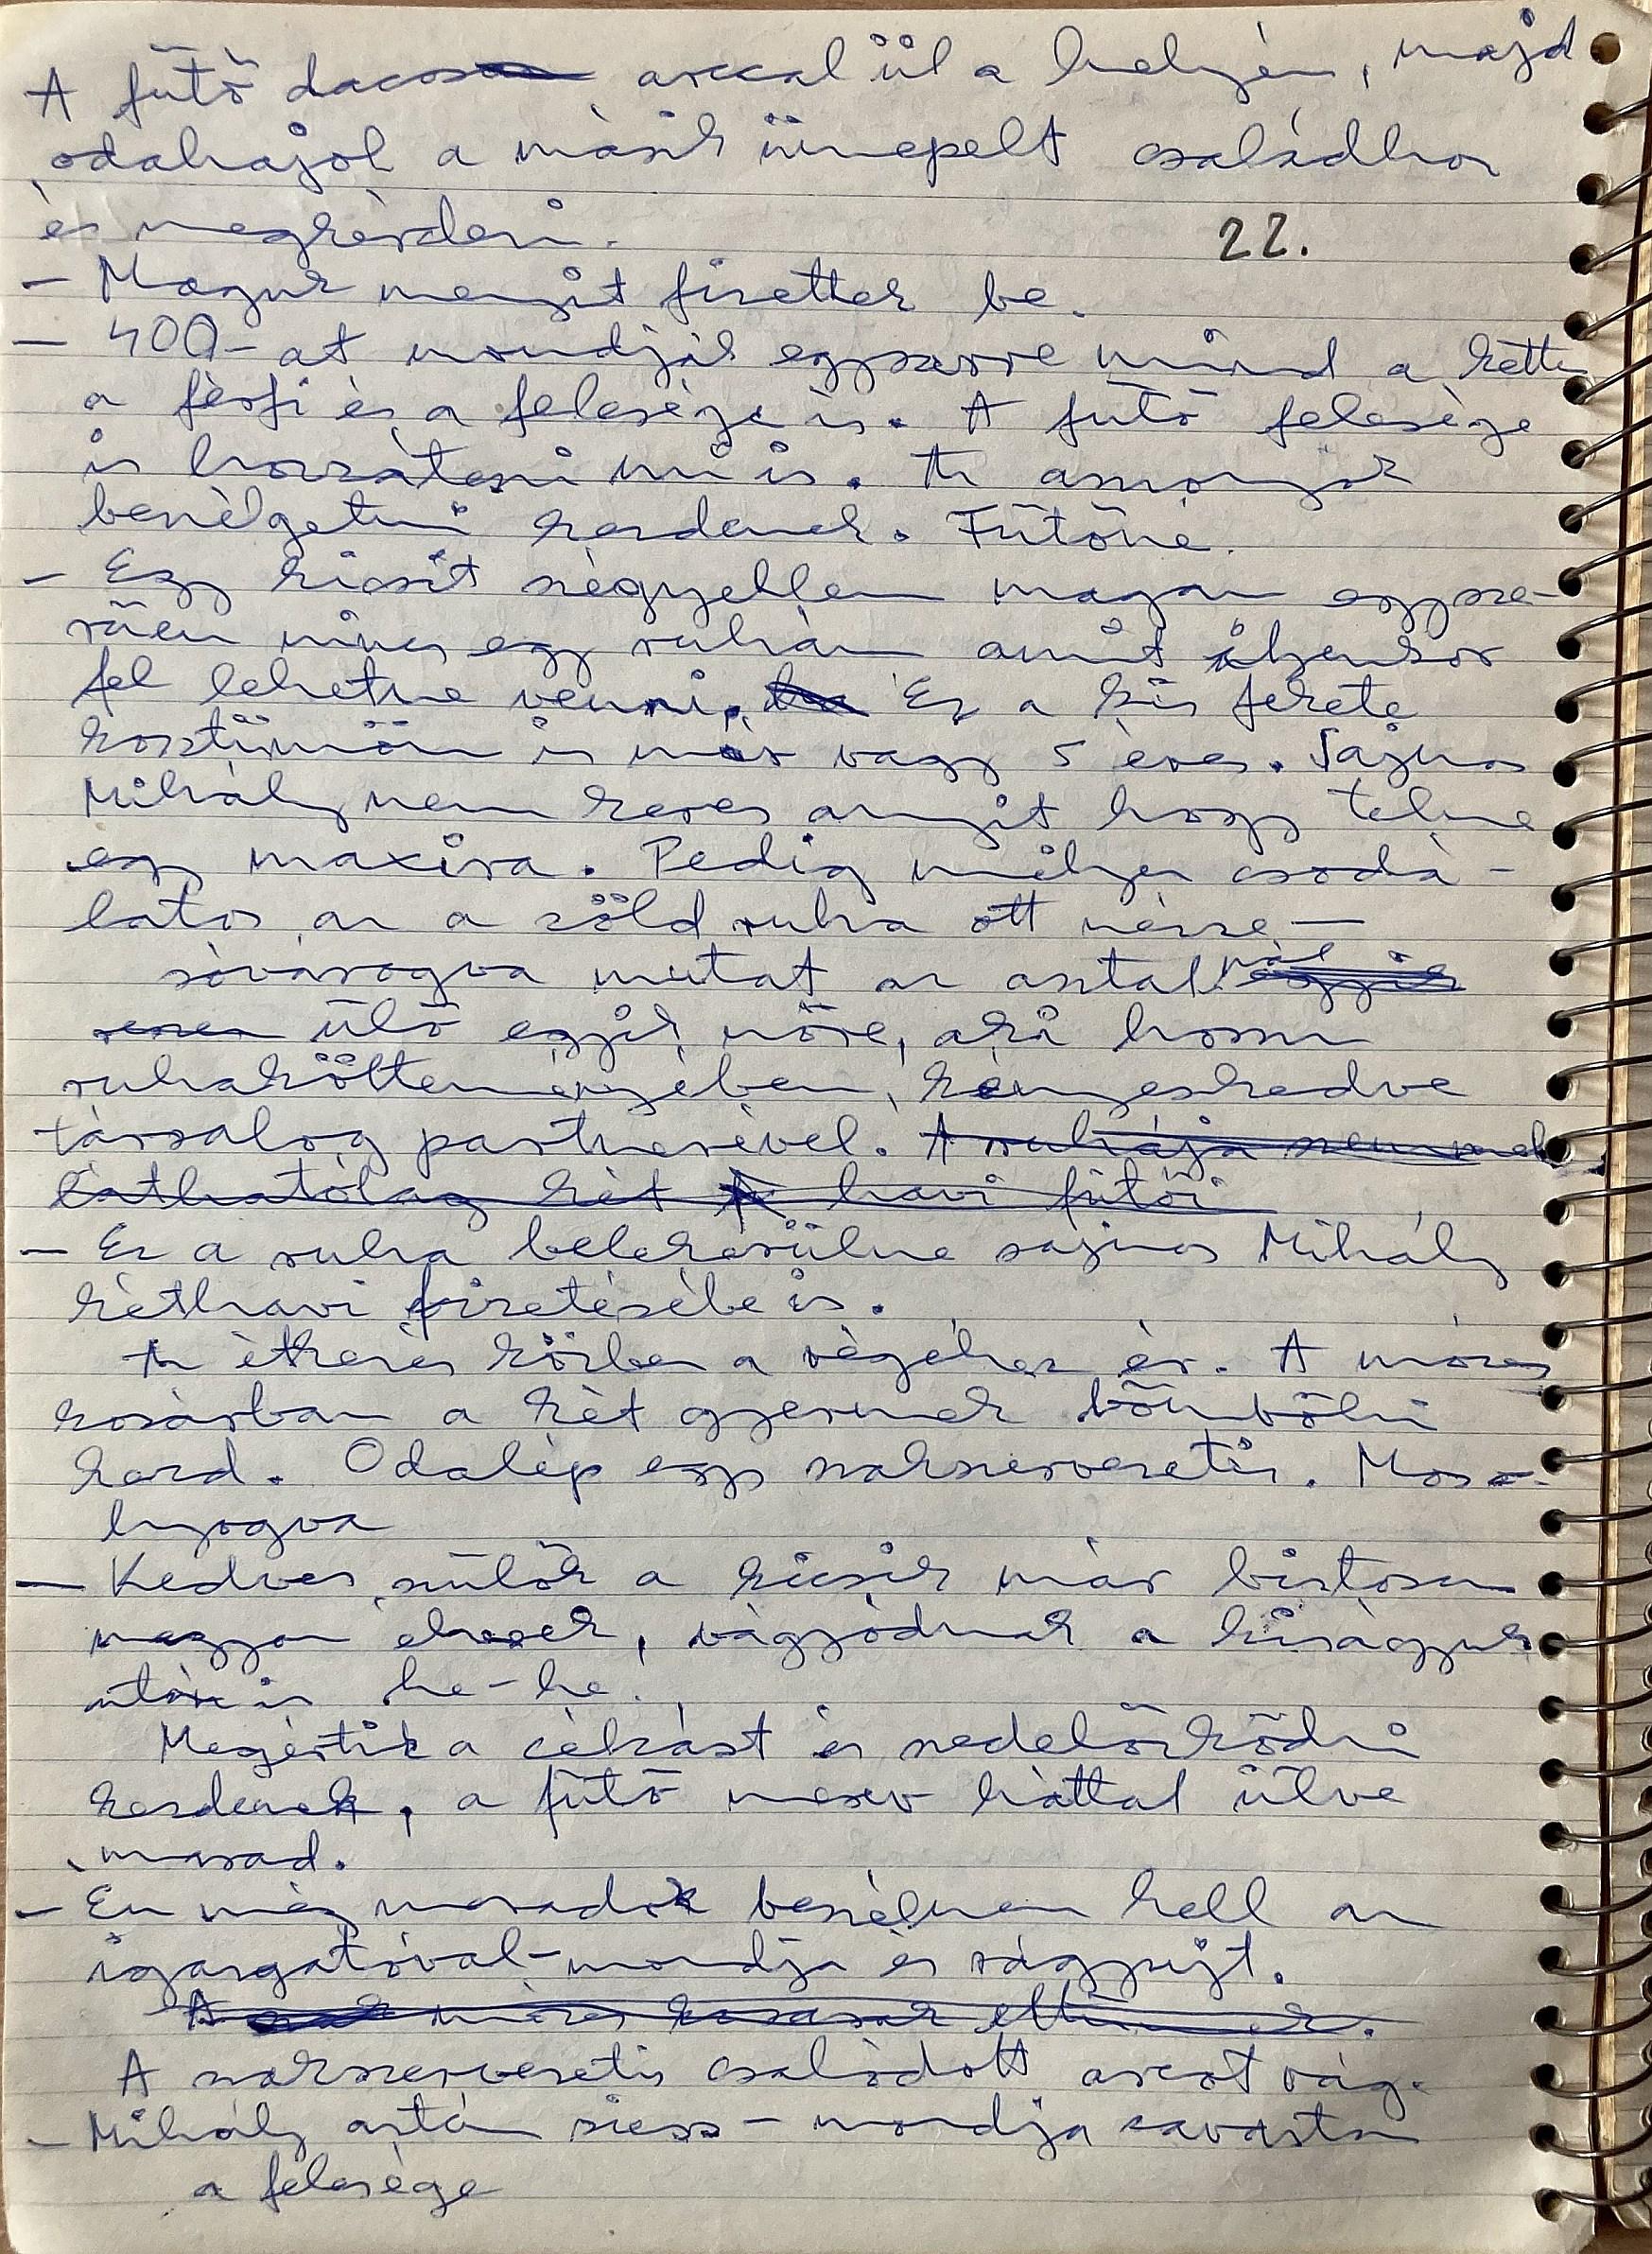 A fűtő dacos arccal ül a helyén, majd
odahajol a másik ünnepelt családhoz
és megkérdezi.
22.
- Maguk mennyit fizettek be.
- 400-at mondják egyszerre mind a kettő
a férfi és a felesége is. A fűtő felesége
is hozzáteszi mi is. Az asszonyok
beszélgetni kezdenek. Fűtőné.
- Egy kicsit szégyellem magam egysze-
rűen nincs egy ruhám amit ilyenkor
fel lehetne venni. Ez a kis fekete
kosztümöm is már vagy 5 éves. Sajnos
Mihály nem keres annyit hogy telne
egy maxira. Pedig milyen csodá-
latos az a zöld ruha ott nézze —
sóvárogva mutat az asztalnál
ülő egyik nőre, aki hosszú
ruhakölteményében, kényeskedve
társalog partnerével. A ruhája
láthatólag két havi fűtői
- Ez a ruha belekerülne sajnos Mihály
kéthavi fizetésébe is.
Az étkezés közben a végéhez ér. A mózes
kosárban a két gyermek bömbölni
kezd. Odalép egy szakszervezetis. Moso-
lyogva
- Kedves szülők a kicsik már biztosan
nagyon éhesek, vágyódnak a kiságyuk
után is he-he.
Megértik a célzást és szedelőzködni
kezdenek, a fűtő merev háttal ülve
marad.
- Én még maradok beszélnem kell az
igazgatóval - mondja és rágyújt.
A mózes kosarak eltünnek.
A szakszervezetis csalódott arcot vág.
- Mihály aztán siess - mondja zavartan
a felesége